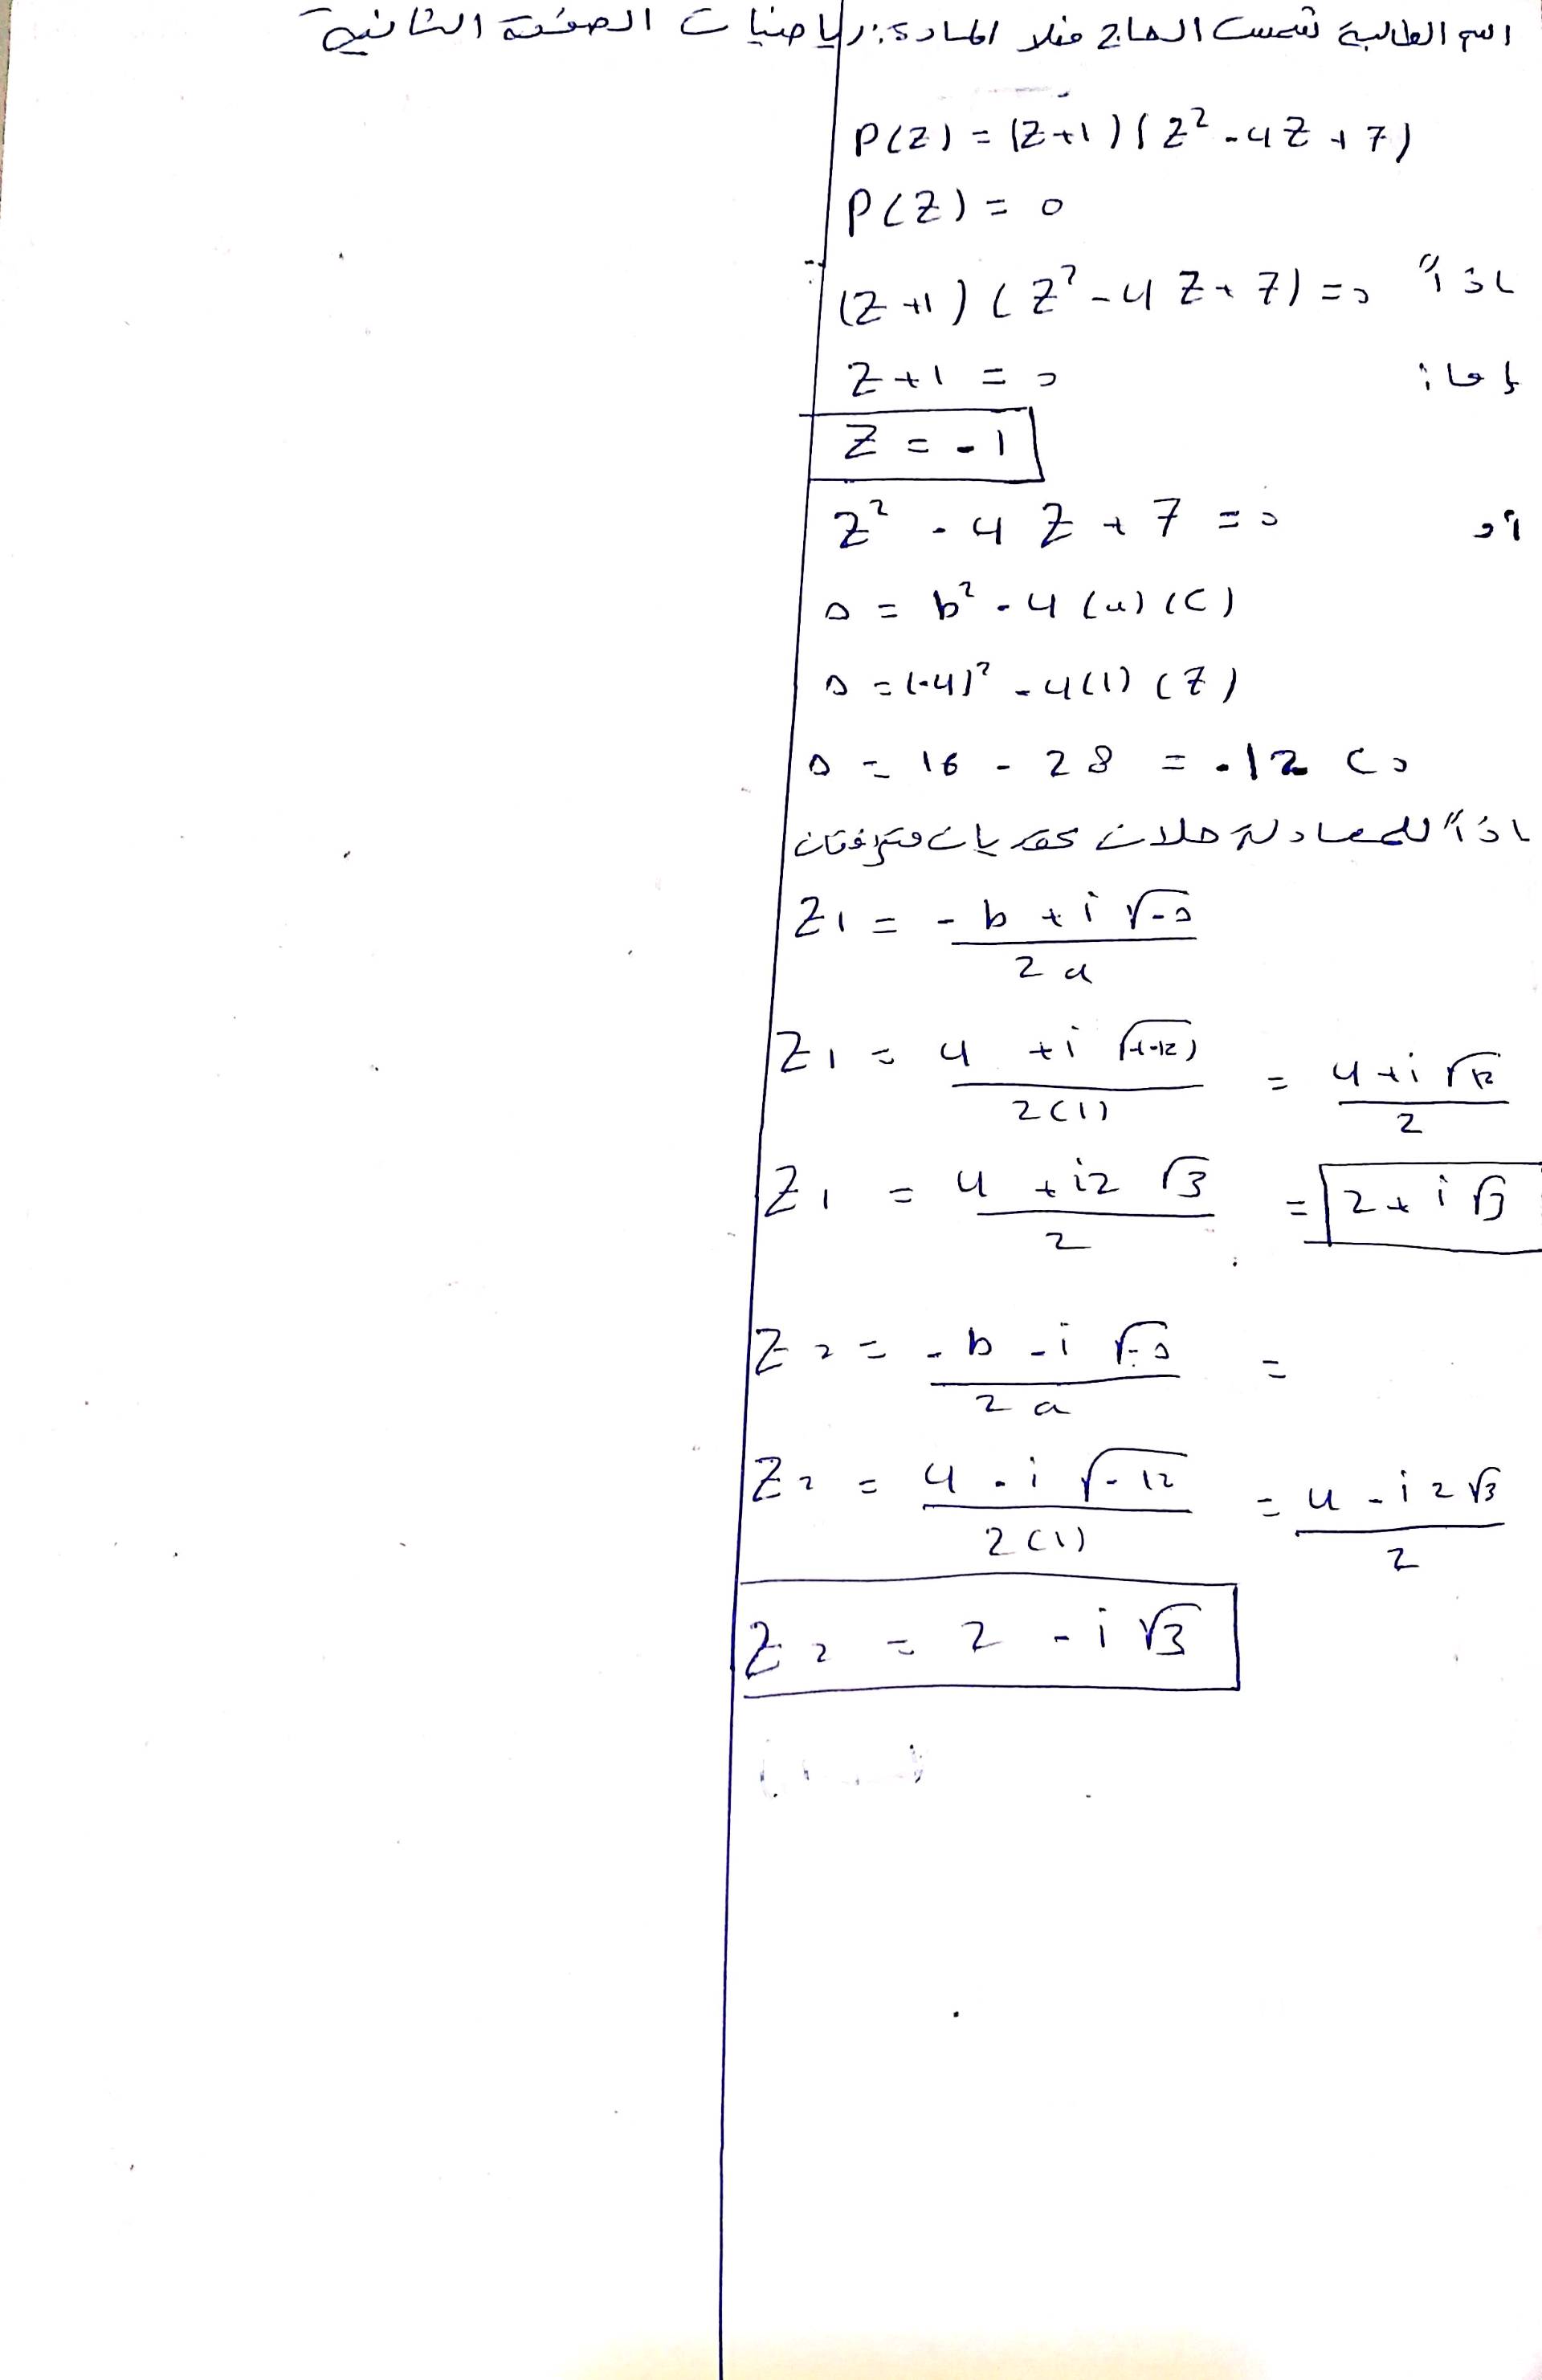 اسم الطالبة شمس الحاج منلا المادة: رياضيات الصفحة الثانية
P(Z) = (Z+1)(Z² - 4Z + 7)
P(Z) = 0
(Z+1)(Z² - 4Z + 7) = 0 اذاً
Z + 1 = 0 إما:
Z = -1
Z² - 4Z + 7 = 0 أو
Δ = b² - 4(a)(c)
Δ = (-4)² - 4(1)(7)
Δ = 16 - 28 = -12 < 0
اذاً للمعادلة حلان عقديان مترافقان
Z1 = (-b + i√-Δ) / 2a
Z1 = (4 + i√-(-12)) / 2(1) = (4 + i√12) / 2
Z1 = (4 + i2√3) / 2 = 2 + i√3
Z2 = (-b - i√-Δ) / 2a =
Z2 = (4 - i√-12) / 2(1) = (4 - i2√3) / 2
Z2 = 2 - i√3